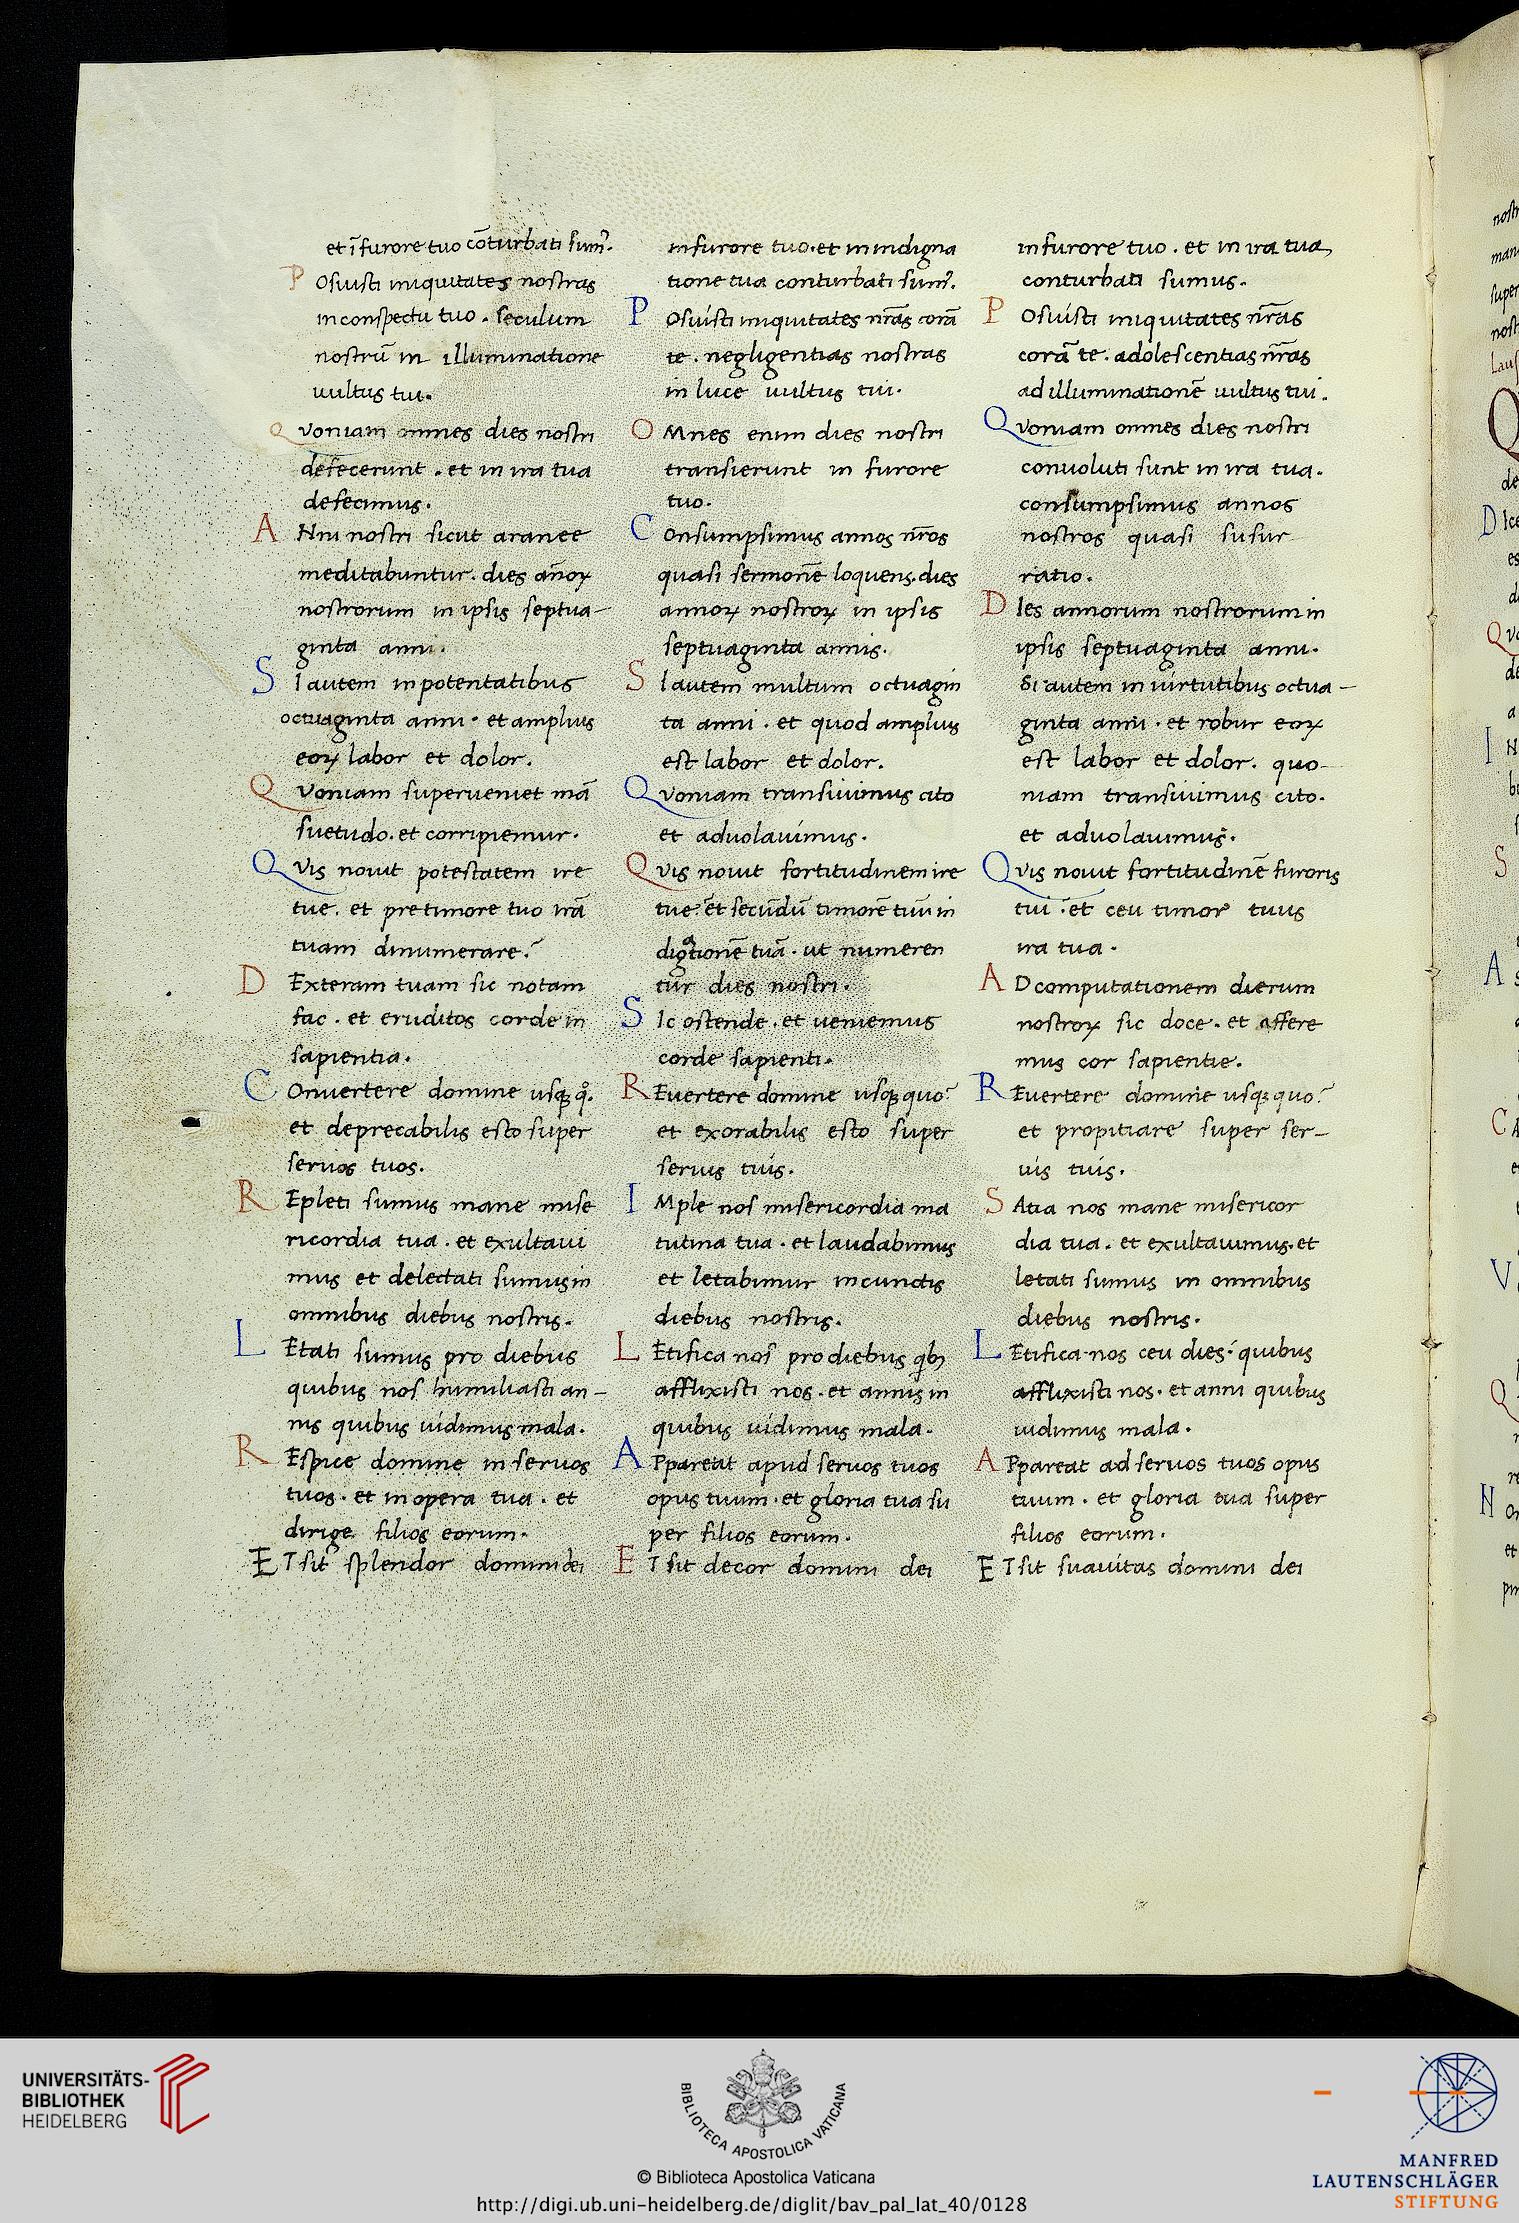 et ī furore tuo cōturbati sumꝰ.
Posuisti iniquitates nostras
in conspectu tuo. seculum
nostrū in illuminatione
uultus tui.
Quoniam omnes dies nostri
defecerunt. et in ira tua
defecimus.
Anni nostri sicut aranee
meditabuntur. dies año⁊ꝝ
nostrorum in ipsis septua-
ginta anni.
Si autem in potentatibus
octuaginta anni. et amplius
eoꝝ labor et dolor.
Quoniam superueniet mā
suetudo. et corripiemur.
Quis nouit potestatem ire
tue. et pre timore tuo irā
tuam dinumerare?
Dexteram tuam sic notam
fac. et eruditos corde in
sapientia.
Conuertere domine usqꝫ q°.
et deprecabilis esto super
seruos tuos.
Repleti sumus mane mise
ricordia tua. et exultaui
mus et delectati sumus in
omnibus diebus nostris.
Letati sumus pro diebus
quibus nos humiliasti an-
nis quibus uidimus mala.
Respice domine in seruos
tuos. et in opera tua. et
dirige filios eorum.
ET sit splendor domini dei
in furore tuo. et in indigna
tione tua conturbati sumꝰ.
Posuisti iniquitates nr̄as corā
te. negligentias nostras
in luce uultus tui.
OMnes enim dies nostri
transierunt in furore
tuo.
Consumpsimus annos nr̄os
quasi sermonē loquens. dies
annoꝝ nostroꝝ in ipsis
septuaginta annis.
Si autem multum octuagin
ta anni. et quod amplius
est labor et dolor.
Quoniam transiuimus cito
et aduolauimus.
Quis nouit fortitudinem ire
tue. et secūdū timorē tuū in
digationē tuā. ut numeren
tur dies nostri.
Sic ostende. et ueniemus
corde sapienti.
Reuertere domine usqꝫ quo?
et exorabilis esto super
seruis tuis.
IMple nos misericordia ma
tutina tua. et laudabimus
et letabimur in cunctis
diebus nostris.
Letifica nos pro diebus qͥbꝫ
afflixisti nos. et annis in
quibus uidimus mala.
Appareat apud seruos tuos
opus tuum. et gloria tua su
per filios eorum.
ET sit decor domini dei
in furore tuo. et in ira tua
conturbati sumus.
Posuisti iniquitates nr̄as
corā te. adolescentias nr̄as
ad illuminationē uultus tui.
Quoniam omnes dies nostri
conuoluti sunt in ira tua.
consumpsimus annos
nostros quasi susur
ratio.
Dies annorum nostrorum in
ipsis septuaginta anni.
Si autem in uirtutibus octua-
ginta anni. et robur eoꝝ
est labor et dolor. quo-
niam transiuimus cito.
et aduolauimus.
Quis nouit fortitudinē furoris
tui. et ceu timor tuus
ira tua.
AD computationem dierum
nostroꝝ sic doce. et affere
mus cor sapientie.
Reuertere domine usqꝫ quo?
et propitiare super ser-
uis tuis.
Satia nos mane misericor
dia tua. et exultauimus. et
letati sumus in omnibus
diebus nostris.
Letifica nos ceu dies: quibus
afflixisti nos. et anni quibus
uidimus mala.
Appareat ad seruos tuos opus
tuum. et gloria tua super
filios eorum.
ET sit suauitas domini dei
UNIVERSITÄTS-
BIBLIOTHEK
HEIDELBERG
BIBLIOTECA APOSTOLICA VATICANA
© Biblioteca Apostolica Vaticana
http://digi.ub.uni-heidelberg.de/diglit/bav_pal_lat_40/0128
MANFRED
LAUTENSCHLÄGER
STIFTUNG